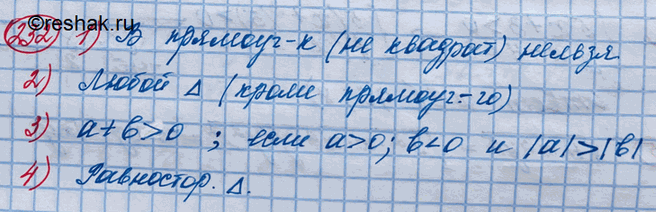 ©reshak.ru
232) 1) В прямоуг-к (не квадрат) нельзя
2) Любой △ (кроме прямоуг-го)
3) a+b>0 ; если a>0; b<0 и |a|>|b|
4) Равностор. △.